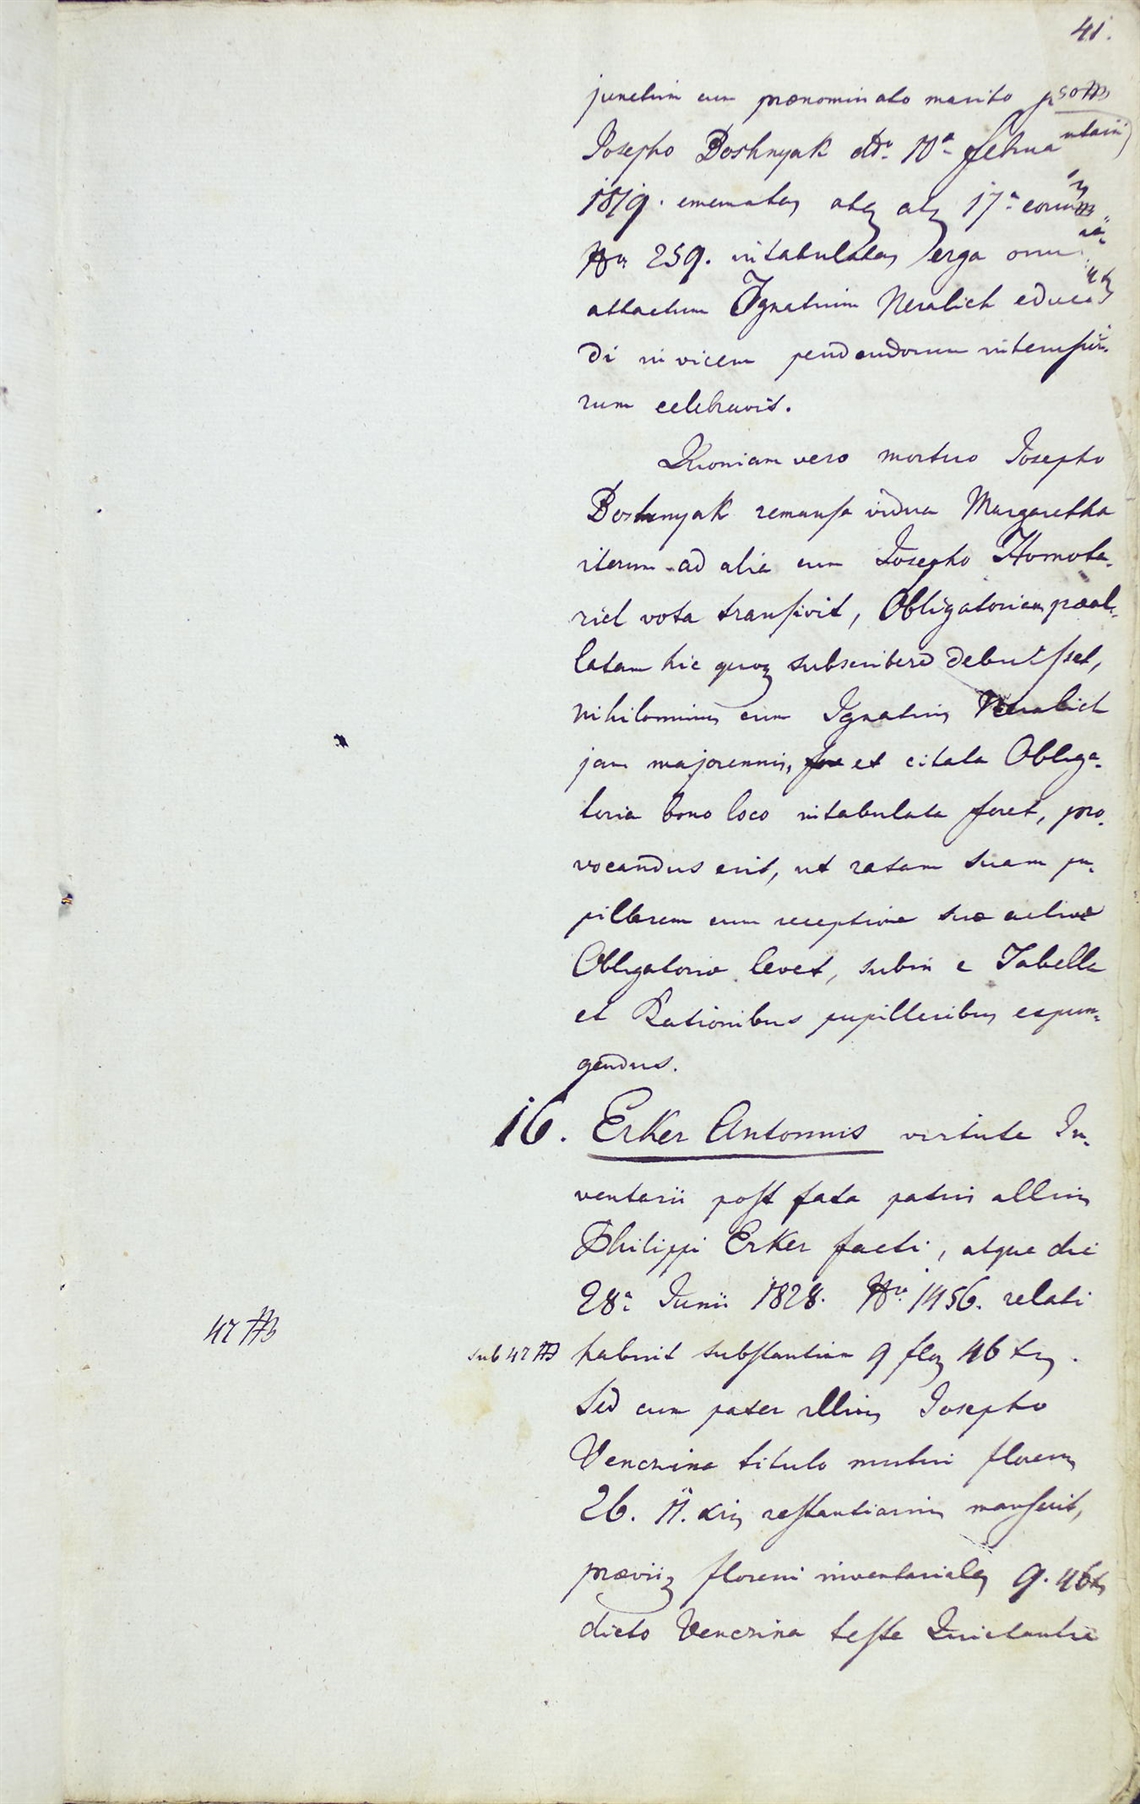 41.
junctim cum prænominato marito
Josepho Boshnyak ddo 10a februa
1819. emanatas atq
No 259. intabulatas erga onus
attactum Ignatium Neralich educan
di in vicem pendendorum interusurio
rum celebravit.
Quoniam vero mortuo Josepho
Boshnyak remansa vidua Margaretha
iterum ad alia cum Josepho Homota-
rich vota transivit, Obligatoriam præal-
latam hic quoq subscribere debuisset,
nihilominus cum Ignatius Neralich
jam majorennis, et citata Obliga-
toria bono loco intabulata foret, pro-
vocandus erit, ut ratam suam pu-
pillarem cum receptione suæ activæ
Obligatoriæ levet, subin e Tabella
et Rationibus pupillaribus expun-
gendus.
16. Erker Antonius virtute In-
ventarii post fata patris illius
Philippi Erker facti, atque die
28a Junii 1828. No 1456. relati
47
sub 47 habuit substantiam 9 flor 46 xr.
Sed cum pater illius Josepho
Vencrina titulo mutui florenos
26. 11. xris restantiarius manserit,
præviiq floreni inventariales 9. 46 x
dicto Vencrina teste Quietantia